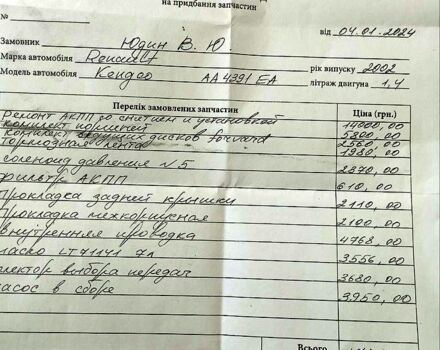 на придбання запчастин
№ від 04.01.2024
Замовник Юдин В. Ю.
Марка автомобіля Renault рік випуску 2002
Модель автомобіля Кенгоо АА4391ЕА літраж двигуна 1,4
Перелік замовлених запчастин Ціна (грн.)
Ремонт АКПП со снятием и установкой 14000,00
комплект поршней 5800,00
комплект дисков forward 2560,00
Тормозная лента 1980,00
соленоид давления №5 2870,00
фильтр АКПП 610,00
Прокладка задней крышки 2110,00
Прокладка межкорпусная 2100,00
внутренняя проводка 4768,00
масло LT71141 7л 3556,00
селектор выбора передач 3680,00
насос в сборе 3950,00
Всього